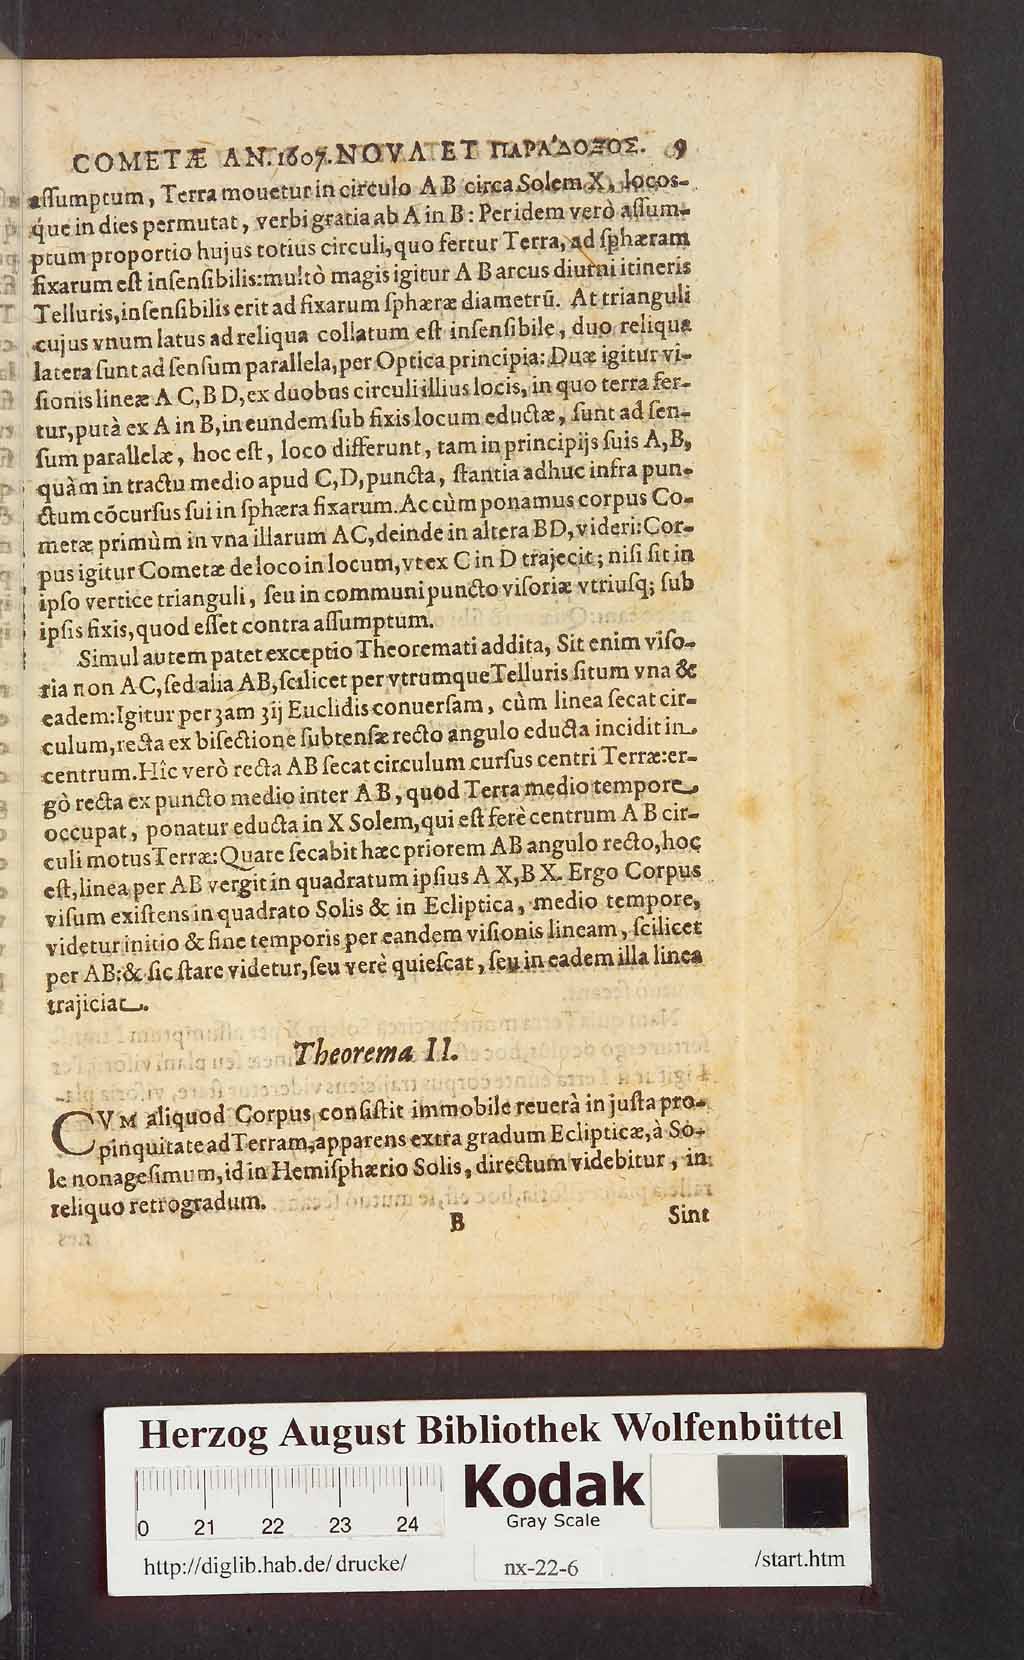 COMETÆ AN. 1607. NOVA ET ΠΑΡΑ'ΔΟΞΟΣ. 9
aſſumptum, Terra mouetur in circulo A B circa Solem X, locos-
q́ue in dies permutat, verbi gratia ab A in B: Per idem verò aſſum-
ptum proportio hujus totius circuli, quo fertur Terra, ad ſphæram
fixarum eſt inſenſibilis: multò magis igitur A B arcus diurni itineris
Telluris, inſenſibilis erit ad fixarum ſphæræ diametrū. At trianguli
cujus vnum latus ad reliqua collatum eſt inſenſibile, duo reliqua
latera ſunt ad ſenſum parallela, per Optica principia: Duæ igitur vi-
ſionis lineæ A C, B D, ex duobus circuli illius locis, in quo terra fer-
tur, putà ex A in B, in eundem ſub fixis locum eductæ, ſunt ad ſen-
ſum parallelæ, hoc eſt, loco differunt, tam in principijs ſuis A, B,
quàm in tractu medio apud C, D, puncta, ſtantia adhuc infra pun-
ctum cōcurſus ſui in ſphæra fixarum. Ac cùm ponamus corpus Co-
metæ primùm in vna illarum AC, deinde in altera BD, videri: Cor-
pus igitur Cometæ de loco in locum, vt ex C in D trajecit; niſi ſit in
ipſo vertice trianguli, ſeu in communi puncto viſoriæ vtriuſq; ſub
ipſis fixis, quod eſſet contra aſſumptum.
Simul autem patet exceptio Theoremati addita, Sit enim viſo-
ria non AC, ſed alia AB, ſcilicet per vtrumque Telluris ſitum vna &
eadem: Igitur per 3am 3ij Euclidis conuerſam, cùm linea ſecat cir-
culum, recta ex biſectione ſubtenſæ recto angulo educta incidit in
centrum. Hîc verò recta AB ſecat circulum curſus centri Terræ: er-
gò recta ex puncto medio inter A B, quod Terra medio tempore
occupat, ponatur educta in X Solem, qui eſt ferè centrum A B cir-
culi motus Terræ: Quare ſecabit hæc priorem AB angulo recto, hoc
eſt, linea per AB vergit in quadratum ipſius A X, B X. Ergo Corpus
viſum exiſtens in quadrato Solis & in Ecliptica, medio tempore,
videtur initio & fine temporis per eandem viſionis lineam, ſcilicet
per AB: & ſic ſtare videtur, ſeu verè quieſcat, ſeu in eadem illa linea
trajiciat.
Theorema II.
CVM aliquod Corpus conſiſtit immobile reuerà in juſta pro-
pinquitate ad Terram, apparens extra gradum Eclipticæ, à So-
le nonageſimum, id in Hemiſphærio Solis, directum videbitur, in
reliquo retrogradum.
B Sint
Herzog August Bibliothek Wolfenbüttel
0 21 22 23 24
Kodak
Gray Scale
http://diglib.hab.de/drucke/ nx-22-6 /start.htm